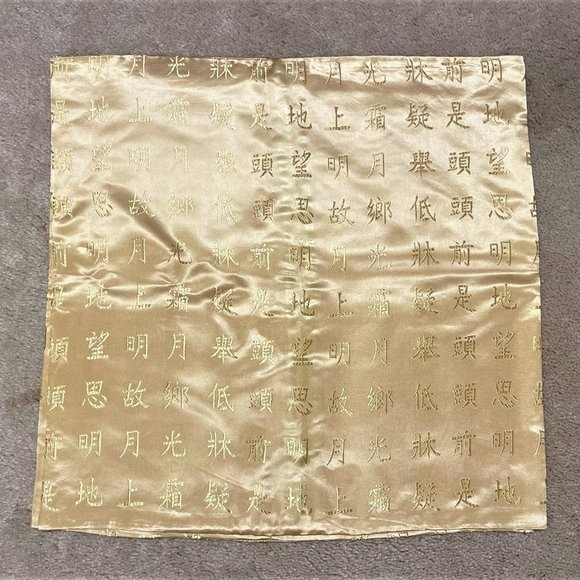 前明月光牀前明月光牀前明
是地上霜疑是地上霜疑是地
頭望明月舉頭望明月舉頭望
頭思故鄉低頭思故鄉低頭思故
前明月光牀前明月光牀前明
是地上霜疑是地上霜疑是地
頭望明月舉頭望明月舉頭望
頭思故鄉低頭思故鄉低頭思
前明月光牀前明月光牀前明月
是地上霜疑是地上霜疑是地上